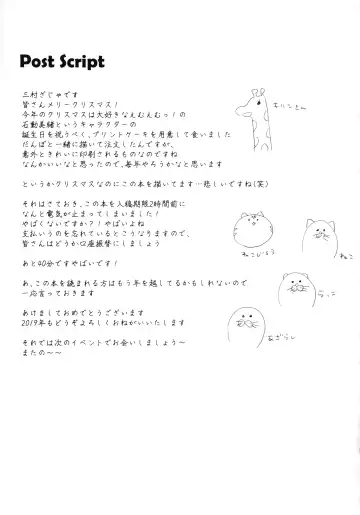 Post Script
三村ざじゃです
皆さんメリークリスマス！
今年のクリスマスは大好きなえむえむっ！の
石動美緒というキャラクターの
誕生日を祝うべく、プリントケーキを用意して食いました
だんぼと一緒に描いて注文したんですが、
意外ときれいに印刷されるものなのですね
なんかいいなと思ったので、毎年やろうかなと思います
というかクリスマスなのにこの本を描いてます…悲しいですね(笑)
それはさておき、この本を入稿期限2時間前に
なんと電気が止まってしまいました！
やばくないですか？！やばいよね
支払いうのを忘れているとこうなりますので、
皆さんはどうか口座振替にしましょう
あと40分ですやばいです！
あ、この本を読まれる方はもう年を越してるかもしれないので
一応言っておきます
あけましておめでとうございます
2019年もどうぞよろしくおねがいいたします
それでは次のイベントでお会いしましょう〜
またの〜〜
きりんさん
ねこ
らっこ
あざらし